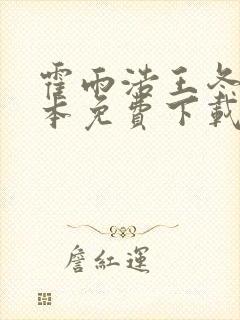 霍雨浩王冬
本免費下載
詹紅運